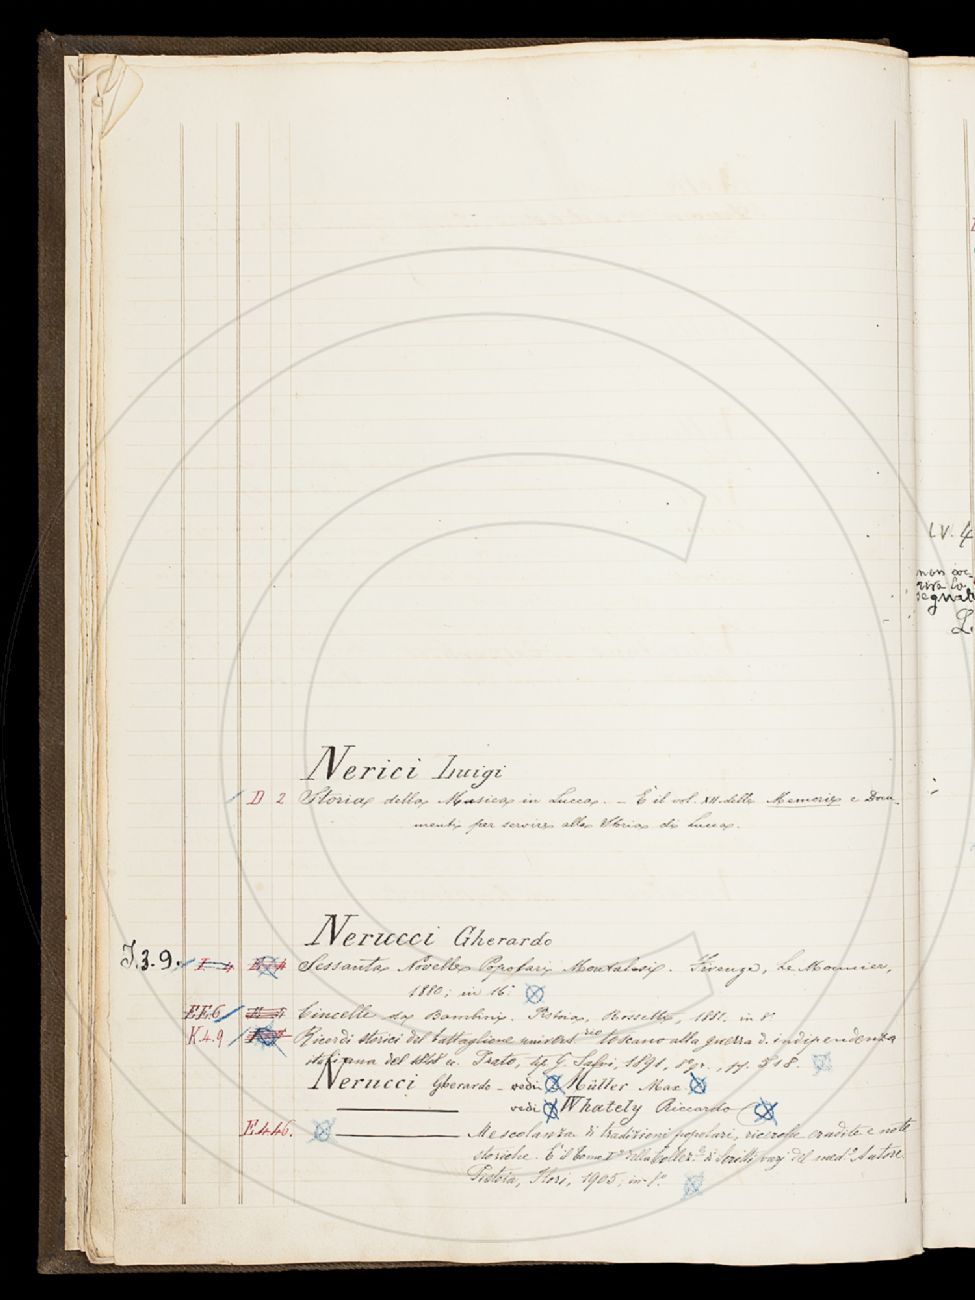 Nerici Luigi
D 2 Storia della Musica in Lucca. – È il vol. XII delle Memorie e Docu-
menti per servire alla Storia di Lucca.
Nerucci Gherardo
J.3.9. Sessanta Novelle Popolari Montalesi. Firenze, Le Monnier,
1880; in 16.°
EE6 Cincelle da Bambini. Pistoia, Rossetti, 1881. in 8.°
K.4.9 Ricordi storici del battaglione universrio toscano alla guerra d. indipendenza
italiana del 1848 Prato, tip. G. Salvi, 1891, 8° gr., pp. 518.
Nerucci Gherardo - vedi Müller Max
vedi Whately Riccardo
E446. Mescolanza di tradizioni popolari, ricerche erudite e note
storiche. È il Tomo della di Scritti del med.° Autore
Pistoia, Flori, 1905; in 8.°
LV. 4
non
la
L.